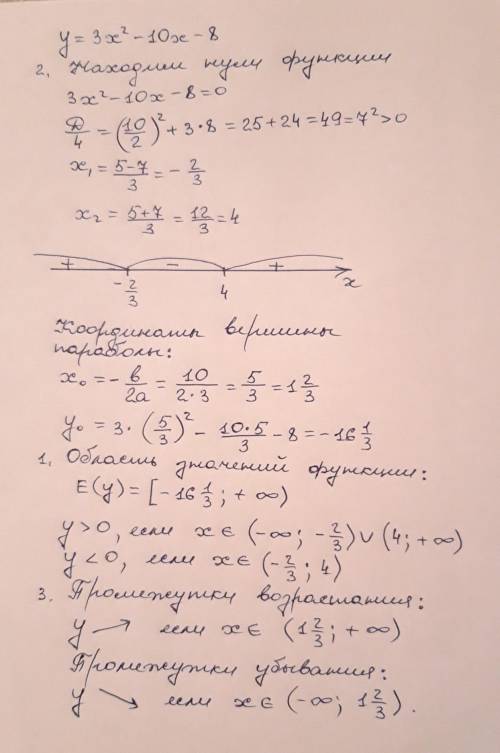 y = 3x² - 10x - 8
2. Находим нули функции
3x² - 10x - 8 = 0
D/4 = (10/2)² + 3·8 = 25 + 24 = 49 = 7² > 0
x₁ = (5-7)/3 = -2/3
x₂ = (5+7)/3 = 12/3 = 4
+ - +
-2/3 4 x
Координаты вершины
параболы:
x₀ = -в/2a = 10/(2·3) = 5/3 = 1 2/3
y₀ = 3·(5/3)² - (10·5)/3 - 8 = -16 1/3
1. Область значений функции:
E(y) = [-16 1/3; +∞)
y > 0, если x ∈ (-∞; -2/3) ∪ (4; +∞)
y < 0, если x ∈ (-2/3; 4)
3. Промежутки возрастания:
y ↗ если x ∈ (1 2/3; +∞)
Промежутки убывания:
y ↘ если x ∈ (-∞; 1 2/3).